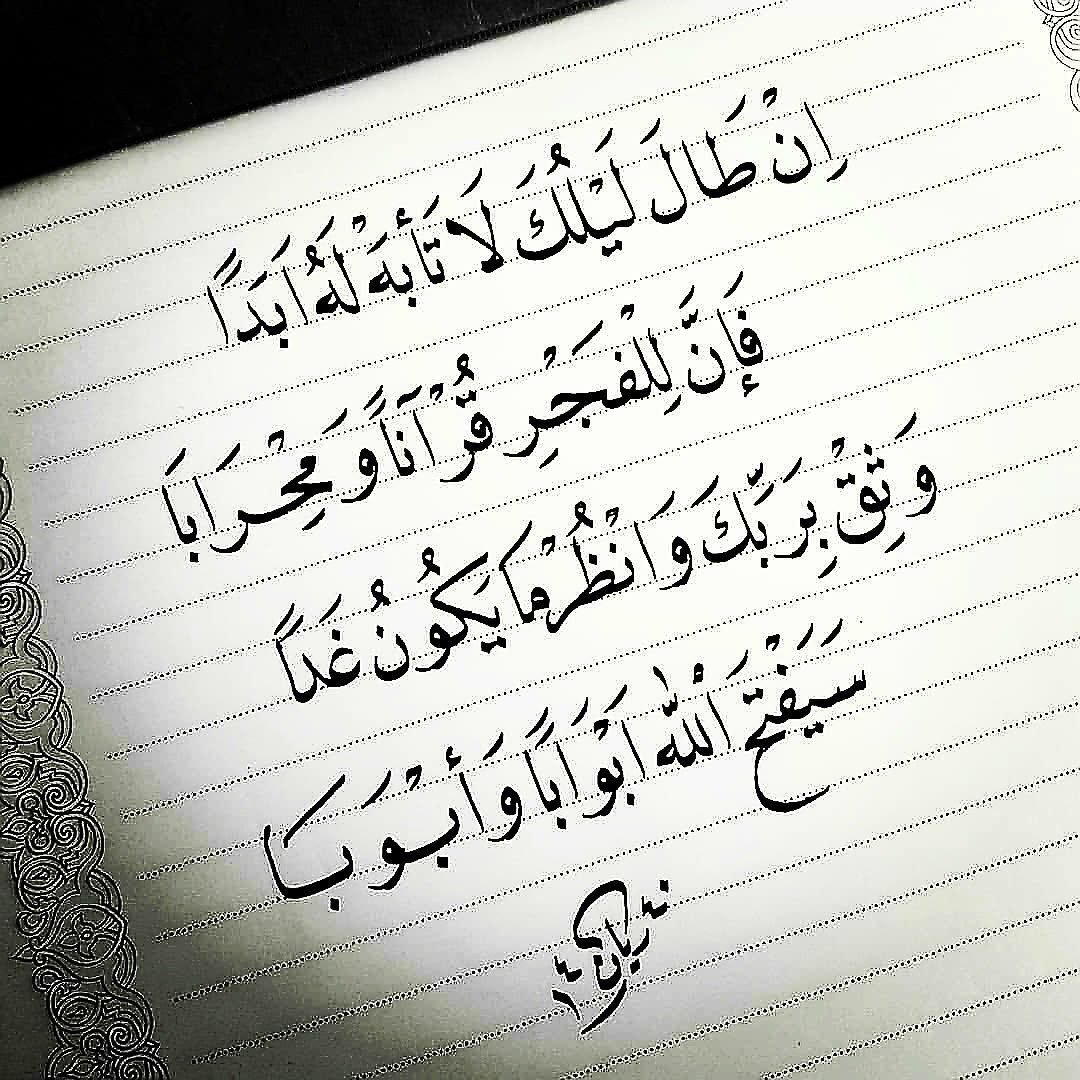 اِنْ طَالَ لَيْلُكَ لَا تَأبَهَ لْهَُ ابَدَاً
فَإنَّ لِلْفَجْرِ قُرْآنَاً وَمِحْرَابَا
وَثِقْ بِرَبِّكَ وَانْظُرْ مَا يَكُونُ غَدَاً
سَيَفْتَح اَللّٰه ابْوَابَاً وَأبْوبَا